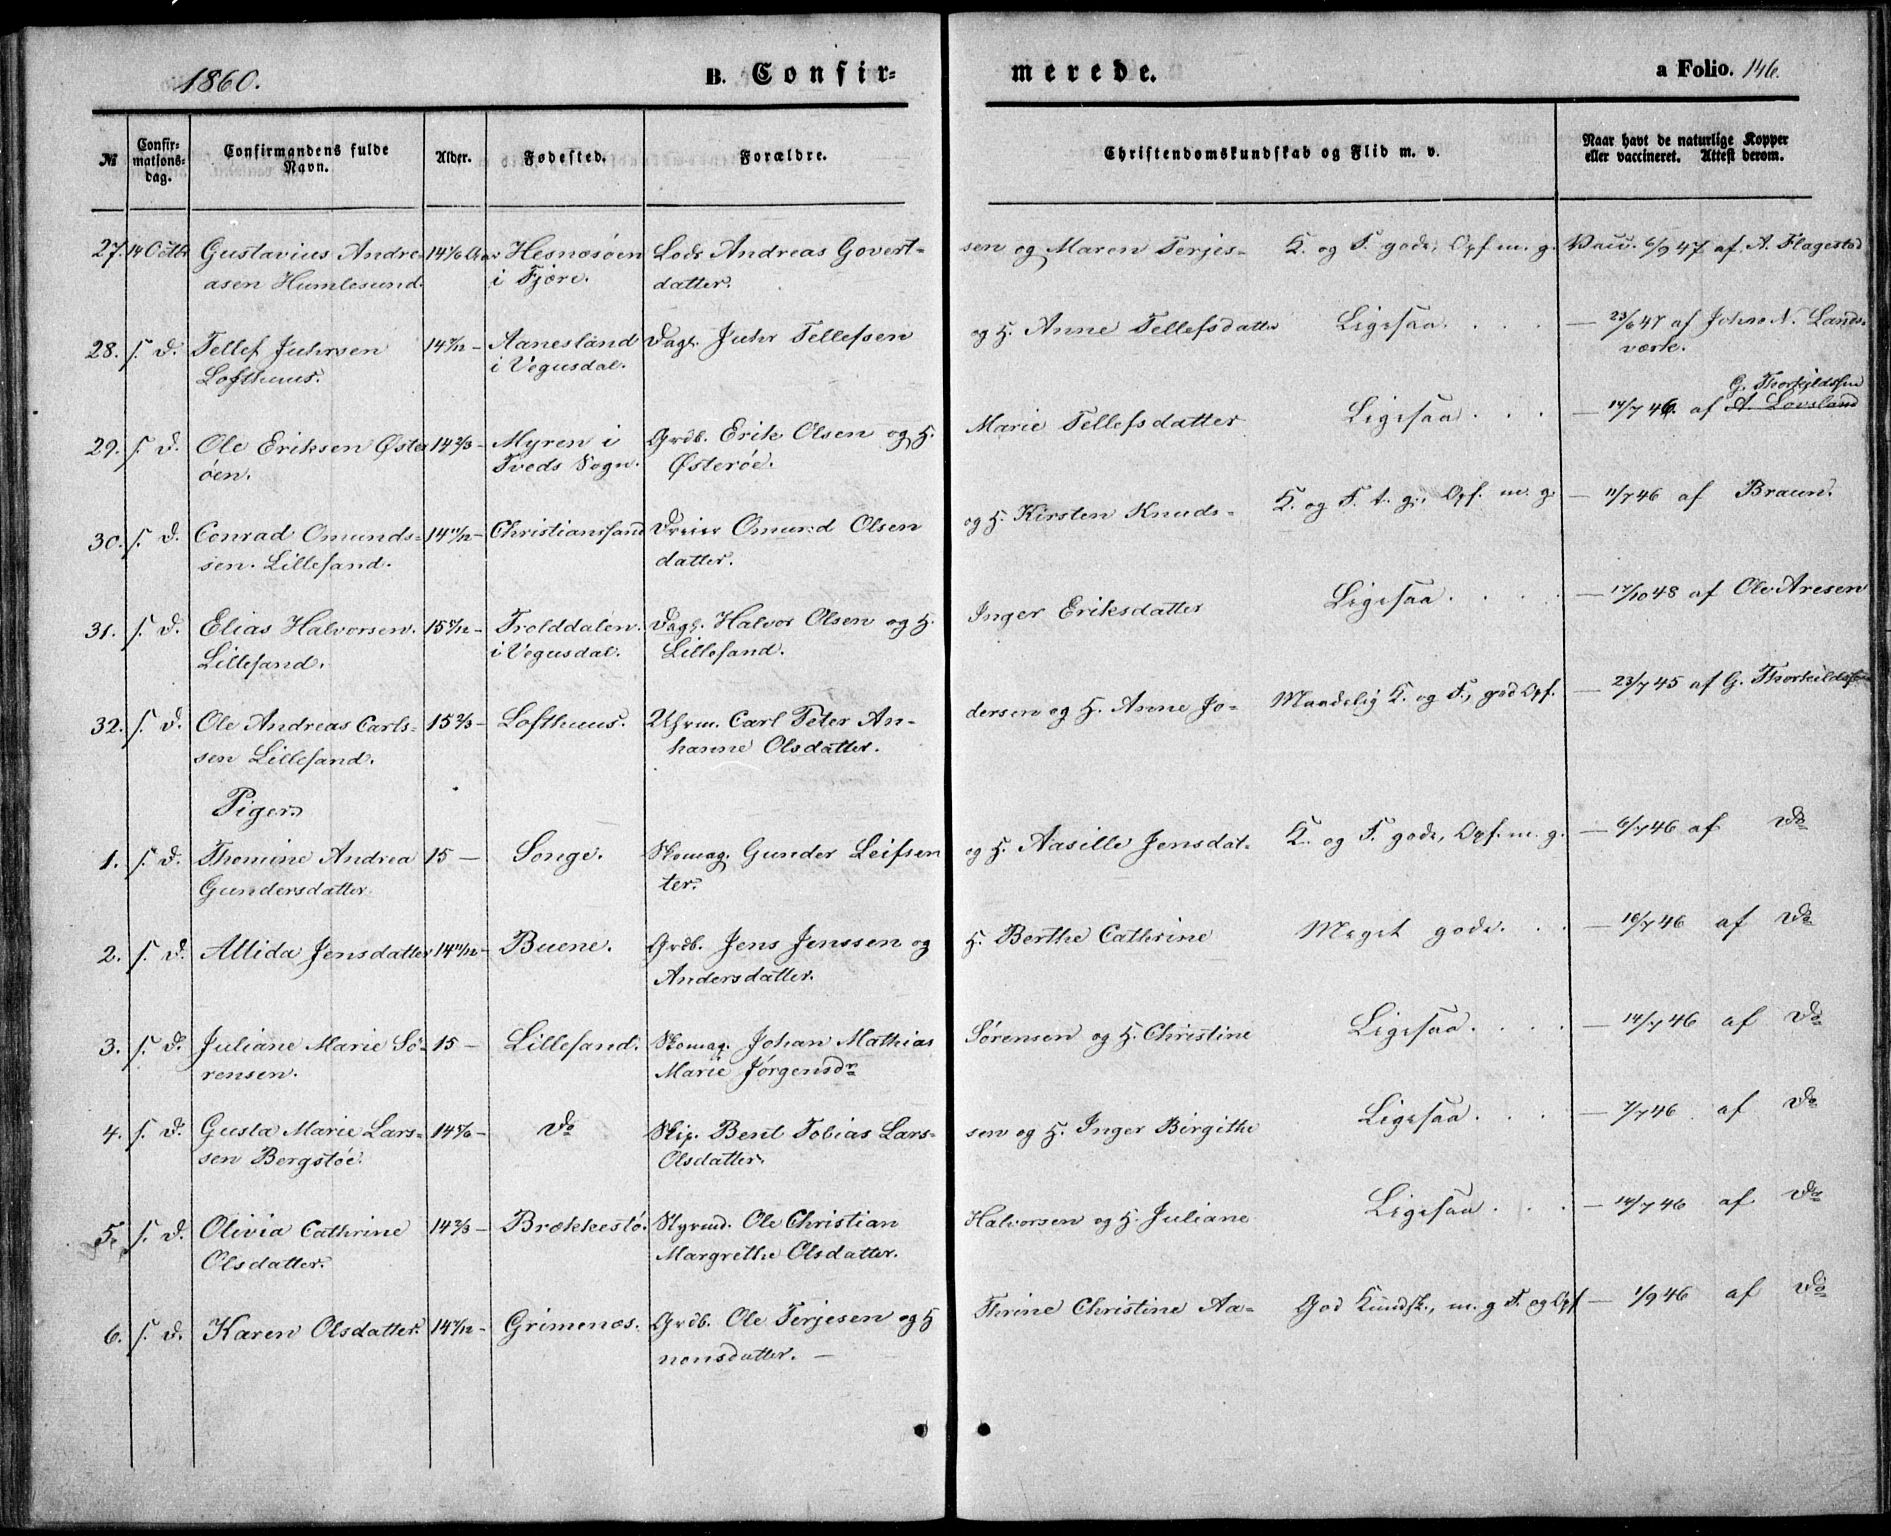 1860.
B. Confir-
merede.
a Folio. 146.
№
Confir-
mations-
dag.
Confirmandens fulde
Navn.
Alder.
Fødested.
Forældre.
Christendomskundskab og Flid m. v.
Naar havt de naturlige Kopper
eller vaccineret. Attest derom.
27. 14 Octbr Gustavius Andre- 14 1/6 Aar Hesnæsøen Lods Andreas Govert- sen og Maren Terjes- K. og F. gode, Opf. m. g. Vacc. 6/9 47 af A. Flagestad
asen Humlesund. i Fjære. datter.
28. s. D. Tellef Juhrsen 14 Aanesland Dagl. Juhr Tellefsen og H. Anne Tellefsdatter Ligesaa. — 23/6 47 af John N. Lands-
Lofthuus. i Vegusdal. værk.
G. Thorkildsen
29. s. D. Ole Eriksen Øster- 14 2/3 — Myren i Grdb. Erik Olsen og H. Marie Tellefsdatter Ligesaa. — 14/7 46 af A. Lovsland
øen. Tveds Sogn. Østerøe.
30. s. D. Conrad Omunds- 14 11/12 — Christianssand Dreier Omund Olsen og H. Kirsten Knuds- K. og F. t. g., Opf. m. g. — 11/7 46 af Braun.
sen. Lillesand. datter.
31. s. D. Elias Halvorsen. 15 — Trolddalen. Dagl. Halvor Olsen og H. Inger Eriksdatter Ligesaa. — 17/10 48 af Ole Aresen
Lillesand. i Vegusdal. Lillesand.
32. s. D. Ole Andreas Carls- 15 2/3 — Lofthuus. Uhrm. Carl Peter An- dersen og H. Anne Jo- Maadelig K. og F., god Opf. — 23/7 45 af G. Thorkildsen
sen Lillesand. hanne Olsdatter.
Piger.
1. s. D. Thomine Andrea 15 — Songe. Skomag. Gunder Leifsen og H. Aasille Jensdat- K. og F. gode, Opf. m. g. — 6/7 46 af Do
Gundersdatter. ter.
2. s. D. Allida Jensdatter 14 11/12 — Buene. Grdb. Jens Jenssen og H. Berthe Cathrine Meget gode. — 16/7 46 af Do
Andersdatter.
3. s. D. Juliane Marie Sø- 15 — Lillesand. Skomag. Johan Mathias Sørensen og H. Christine Ligesaa. — 14/7 46 af Do
rensen. Marie Jørgensdr
4. s. D. Gusta Marie Lars- 14 5/6 — Do Skip. Bent Tobias Lars- sen og H. Inger Birgithe Ligesaa. — 7/7 46 af Do
sen Bergstøe. Olsdatter.
5. s. D. Olivia Cathrine 14 2/3 — Brækkestø. Styrmd. Ole Christian Halvorsen og H. Juliane Ligesaa. — 14/7 46 af Do
Olsdatter. Margrethe Olsdatter.
6. s. D. Karen Olsdatter. 14 — Grimenæs. Grdb. Ole Terjesen og H Thrine Christine Aa- God Kundsk., m. g F. og Opf — 1/9 46 af Do
nonsdatter. —